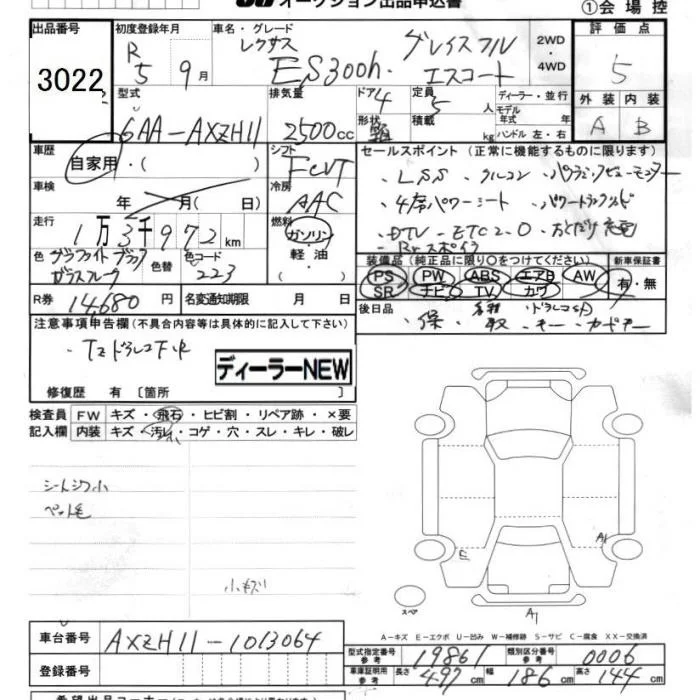 オークション出品申込書
①会場控
出品番号 初度登録年月 車名・グレード 評価点
3022 R5年 9月 レクサス ES300h グレイスフルエスコート 2WD・4WD 5
型式 排気量 ドア 定員 ディーラー・並行 外装 内装
6AA-AXZH11 2500cc 4 5人 モデル年式 年 A B
形状 積載 kg ハンドル 左・右
車歴 シフト セールスポイント(正常に機能するものに限ります)
自家用・( ) FCVT ・LSS ・クルコン ・パノラミックビューモニター
車検 冷房
年 月( 日) AAC ・4席パワーシート ・パワートランクリッド
走行 燃料
1万3千972km ガソリン・軽油・( ) ・DTV ・ETC2.0 ・おくだけ充電
・Brスポイラ
色 グラファイトブラックガラスフレーク 色替 色コード 223
装備品(純正品に限り○をつけてください) 新車保証書
PS PW ABS エアB AW 有・無
SR ナビ TV カワ
R券 14,680円 名変通知期限 月 日
後日品 ・保 ・取 ・キー ・カードキー
注意事項申告欄(不具合内容等は具体的に記入して下さい)
ディーラーNEW
修復歴 有〔箇所 〕
検査員 FW キズ・飛石・ヒビ割・リペア跡・×要
記入欄 内装 キズ・汚れ・コゲ・穴・スレ・キレ・破レ
シートシワ小
ペット毛
小キズ
E
A1
スペア
A1
A-キズ E-エクボ U-凹み W-補修跡 S-サビ C-腐食 XX-交換済
車台番号 AXZH11-1013064
型式指定番号参考 19861 類別区分番号参考 0006
登録番号
車庫証明用参考 長さ 497cm 幅 186cm 高さ 144cm
希望出品コーナー